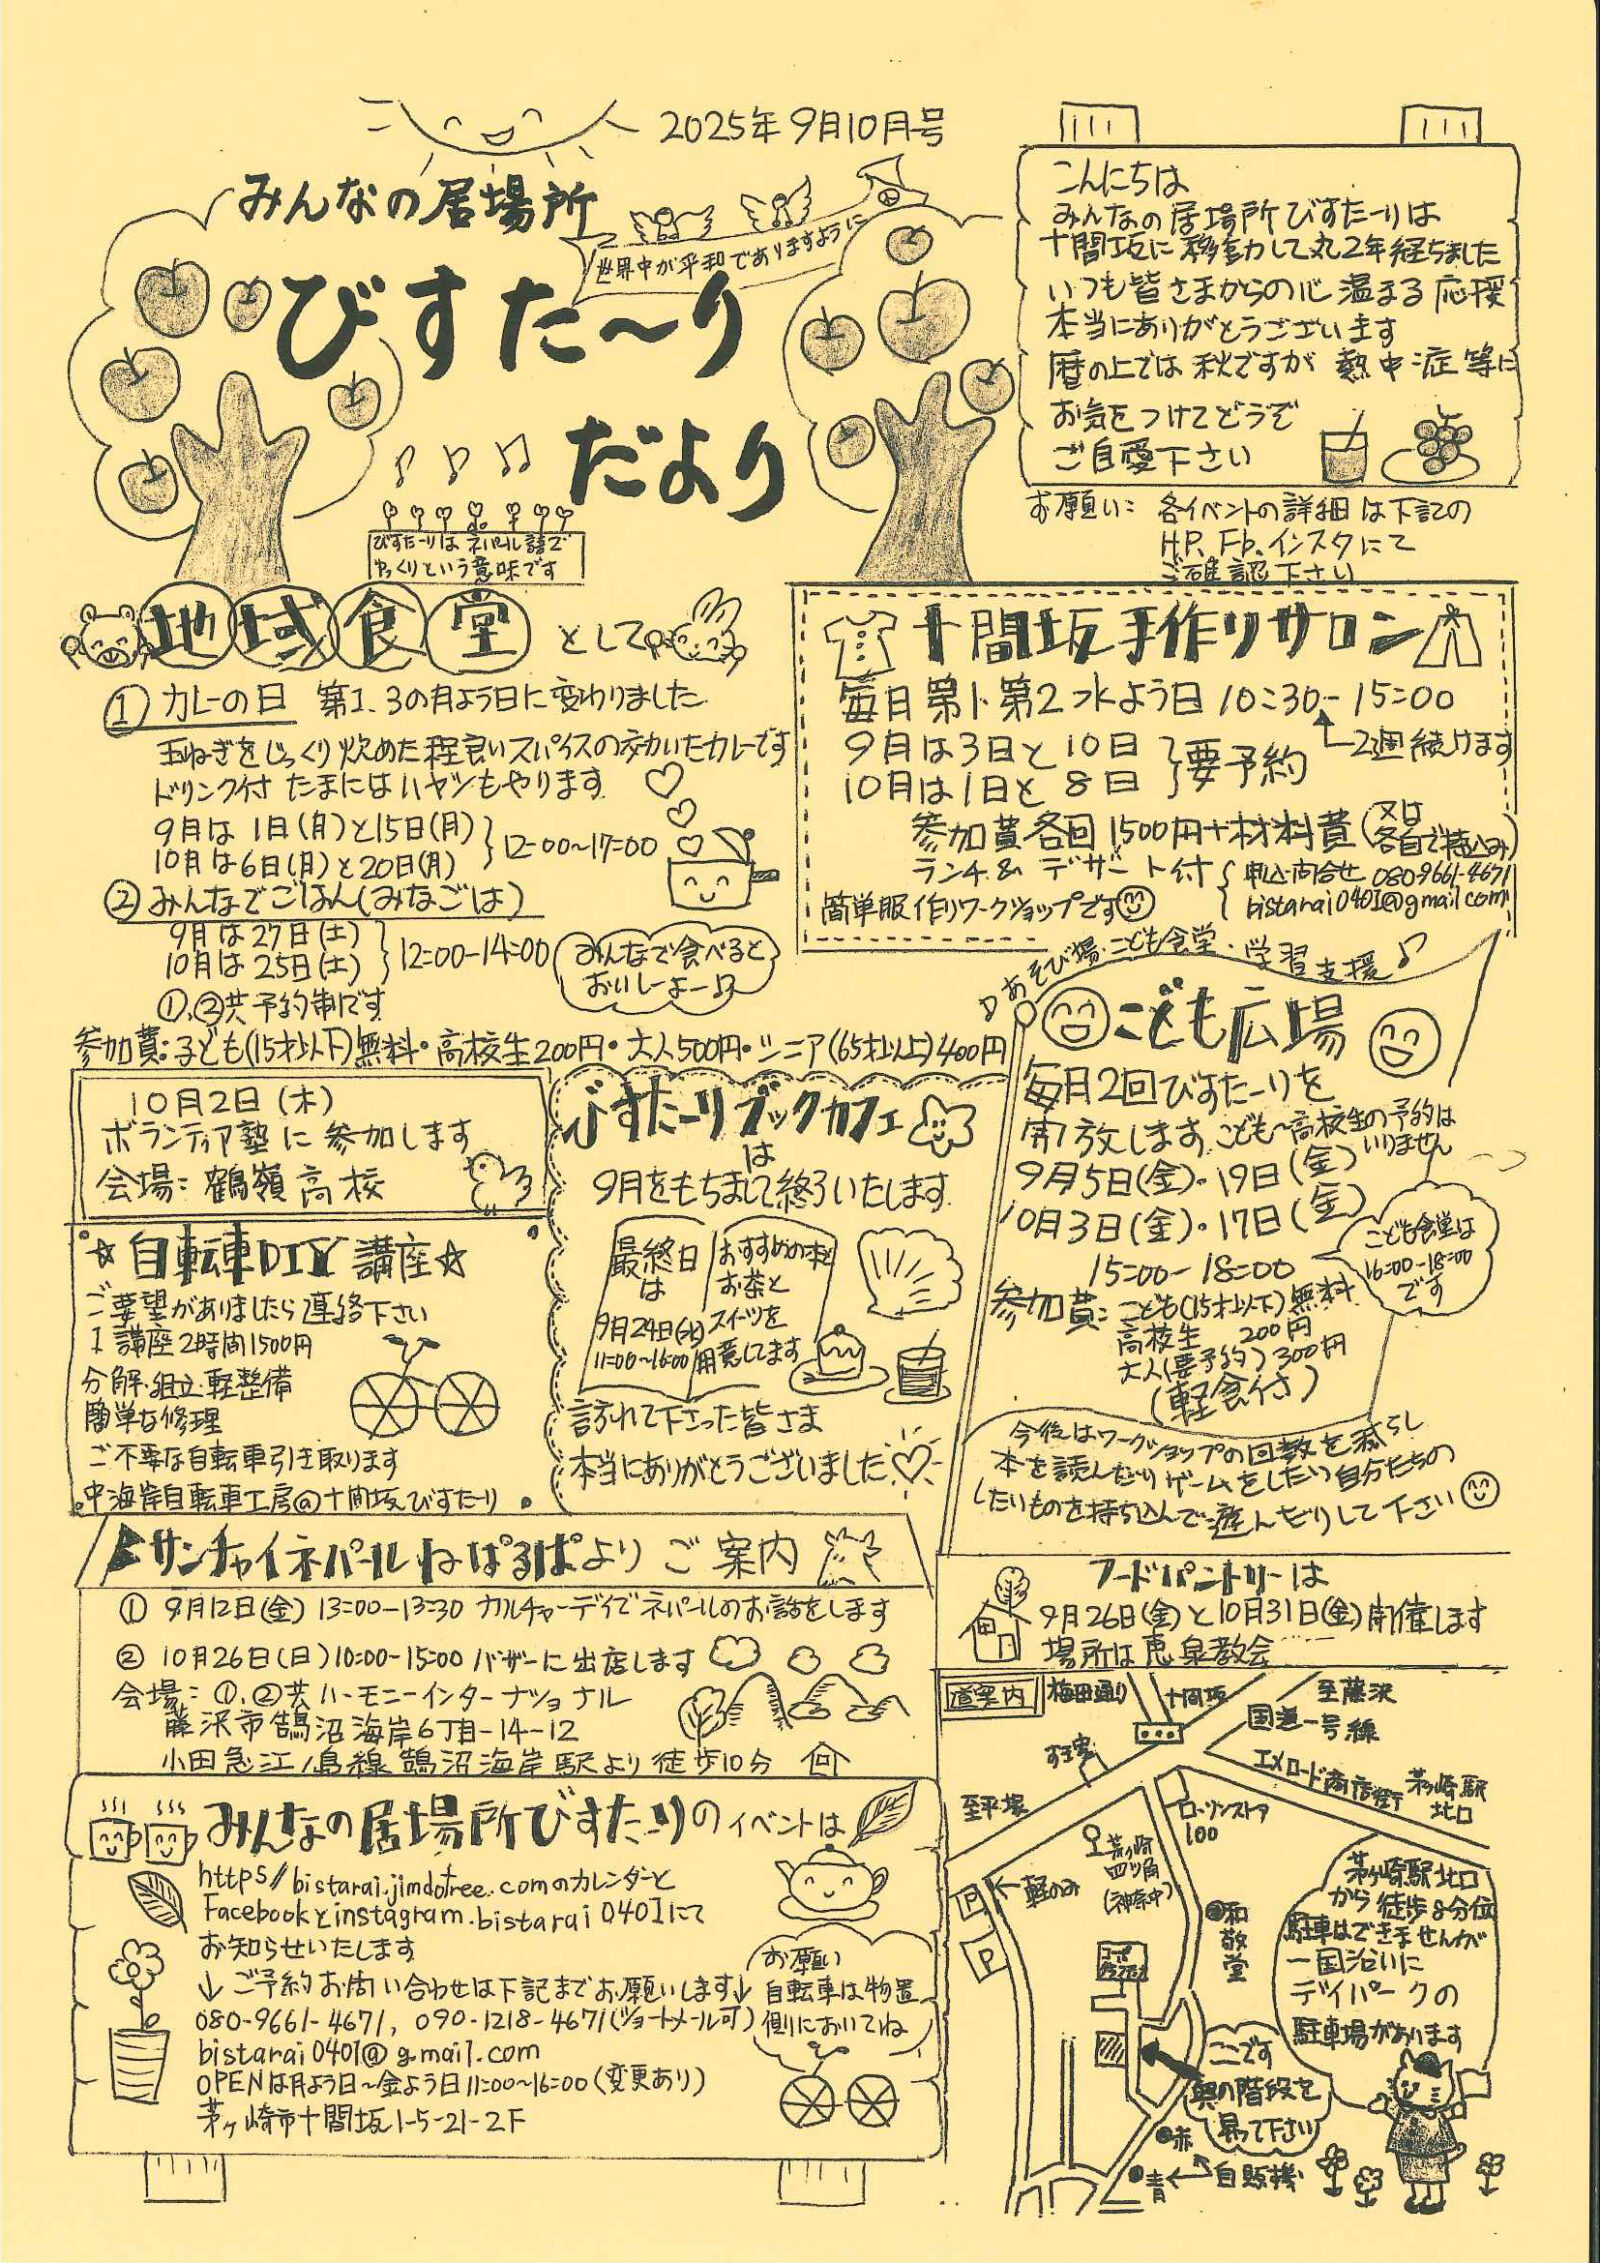 2025年9月10月号
みんなの居場所
世界中が平和でありますように
びすた〜り
だより
びすたーりはネパール語で
ゆっくりという意味です
こんにちは
みんなの居場所びすたーりは
十間坂に移動して丸2年経ちました
いつも皆さまからの心温まる応援
本当にありがとうございます
暦の上では秋ですが熱中症等に
お気をつけてどうぞ
ご自愛下さい
お願い：各イベントの詳細は下記の
HP、Fb、インスタにて
ご確認下さい
地域食堂として
①カレーの日 第1、3の月よう日に変わりました
玉ねぎをじっくり炒めた程良いスパイスの効いたカレーです
ドリンク付 たまにはハヤシもやります
9月は1日(月)と15日(月)
10月は6日(月)と20日(月)
12:00〜17:00
②みんなでごはん(みなごは)
9月は27日(土)
10月は25日(土)
12:00-14:00
みんなで食べると
おいしーよー♪
①、②共予約制です
参加費：子ども(15才以下)無料・高校生200円・大人500円・シニア(65才以上)400円
十間坂手作りサロン
毎月第1・第2水よう日10:30-15:00
2週続けます
9月は3日と10日
10月は1日と8日
要予約
参加費各回1500円+材料費(又は各自で持込み)
ランチ&デザート付
申込・問合せ 080-9661-4671
bistarai0401@gmail.com
簡単服作りワークショップです
♪あそび場・こども食堂・学習支援♪
こども広場
毎月2回びすたーりを
開放します こども〜高校生の予約は
いりません
9月5日(金)・19日(金)
10月3日(金)・17日(金)
15:00-18:00
こども食堂は
16:00-18:00
です
参加費：こども(15才以下)無料
高校生 200円
大人(要予約)300円
(軽食付)
今後はワークショップの回数を減らし
本を読んだりゲームをしたり自分たちの
したいものを持ち込んで遊んだりして下さい
10月2日(木)
ボランティア塾に参加します
会場：鶴嶺高校
びすたーりブックカフェ
は
9月をもちまして終了いたします
最終日
は
9月24日(水)
11:00〜16:00
おすすめの本と
お茶と
スイーツを
用意してます
訪れて下さった皆さま
本当にありがとうございました♡
☆自転車DIY講座☆
ご要望がありましたら連絡下さい
1講座2時間1500円
分解・組立・軽整備
簡単な修理
ご不要な自転車引き取ります
中海岸自転車工房@十間坂びすたーり
サンチャイネパールねぱるぱよりご案内
①9月12日(金)13:00-13:30 カルチャーデイでネパールのお話をします
②10月26日(日)10:00-15:00バザーに出店します
会場：①、②共ハーモニーインターナショナル
藤沢市鵠沼海岸6丁目-14-12
小田急江ノ島線鵠沼海岸駅より徒歩10分
フードパントリーは
9月26日(金)と10月31日(金)開催します
場所は恵泉教会
みんなの居場所びすたーりのイベントは
https//bistarai.jimdotree.comのカレンダーと
Facebookとinstagram.bistarai0401にて
お知らせいたします
↓ご予約お問い合わせは下記までお願いします↓
080-9661-4671, 090-1218-4671(ショートメール可)
bistarai0401@gmail.com
OPENは月よう日〜金よう日11:00〜16:00(変更あり)
茅ヶ崎市十間坂1-5-21-2F
お願い
自転車は物置
側においてね
道案内
梅田通り
十間坂
至藤沢
国道一号線
すき家
エメロード商店街
茅ヶ崎駅
北口
至平塚
ローソンストア
100
茅ヶ崎
四ツ角
(神奈中)
P
←軽のみ
P
和敬堂
ここです
奥の階段を
昇って下さい
赤
青
自販機
茅ヶ崎駅北口
から徒歩8分位
駐車はできませんが
一国沿いに
デイパークの
駐車場があります